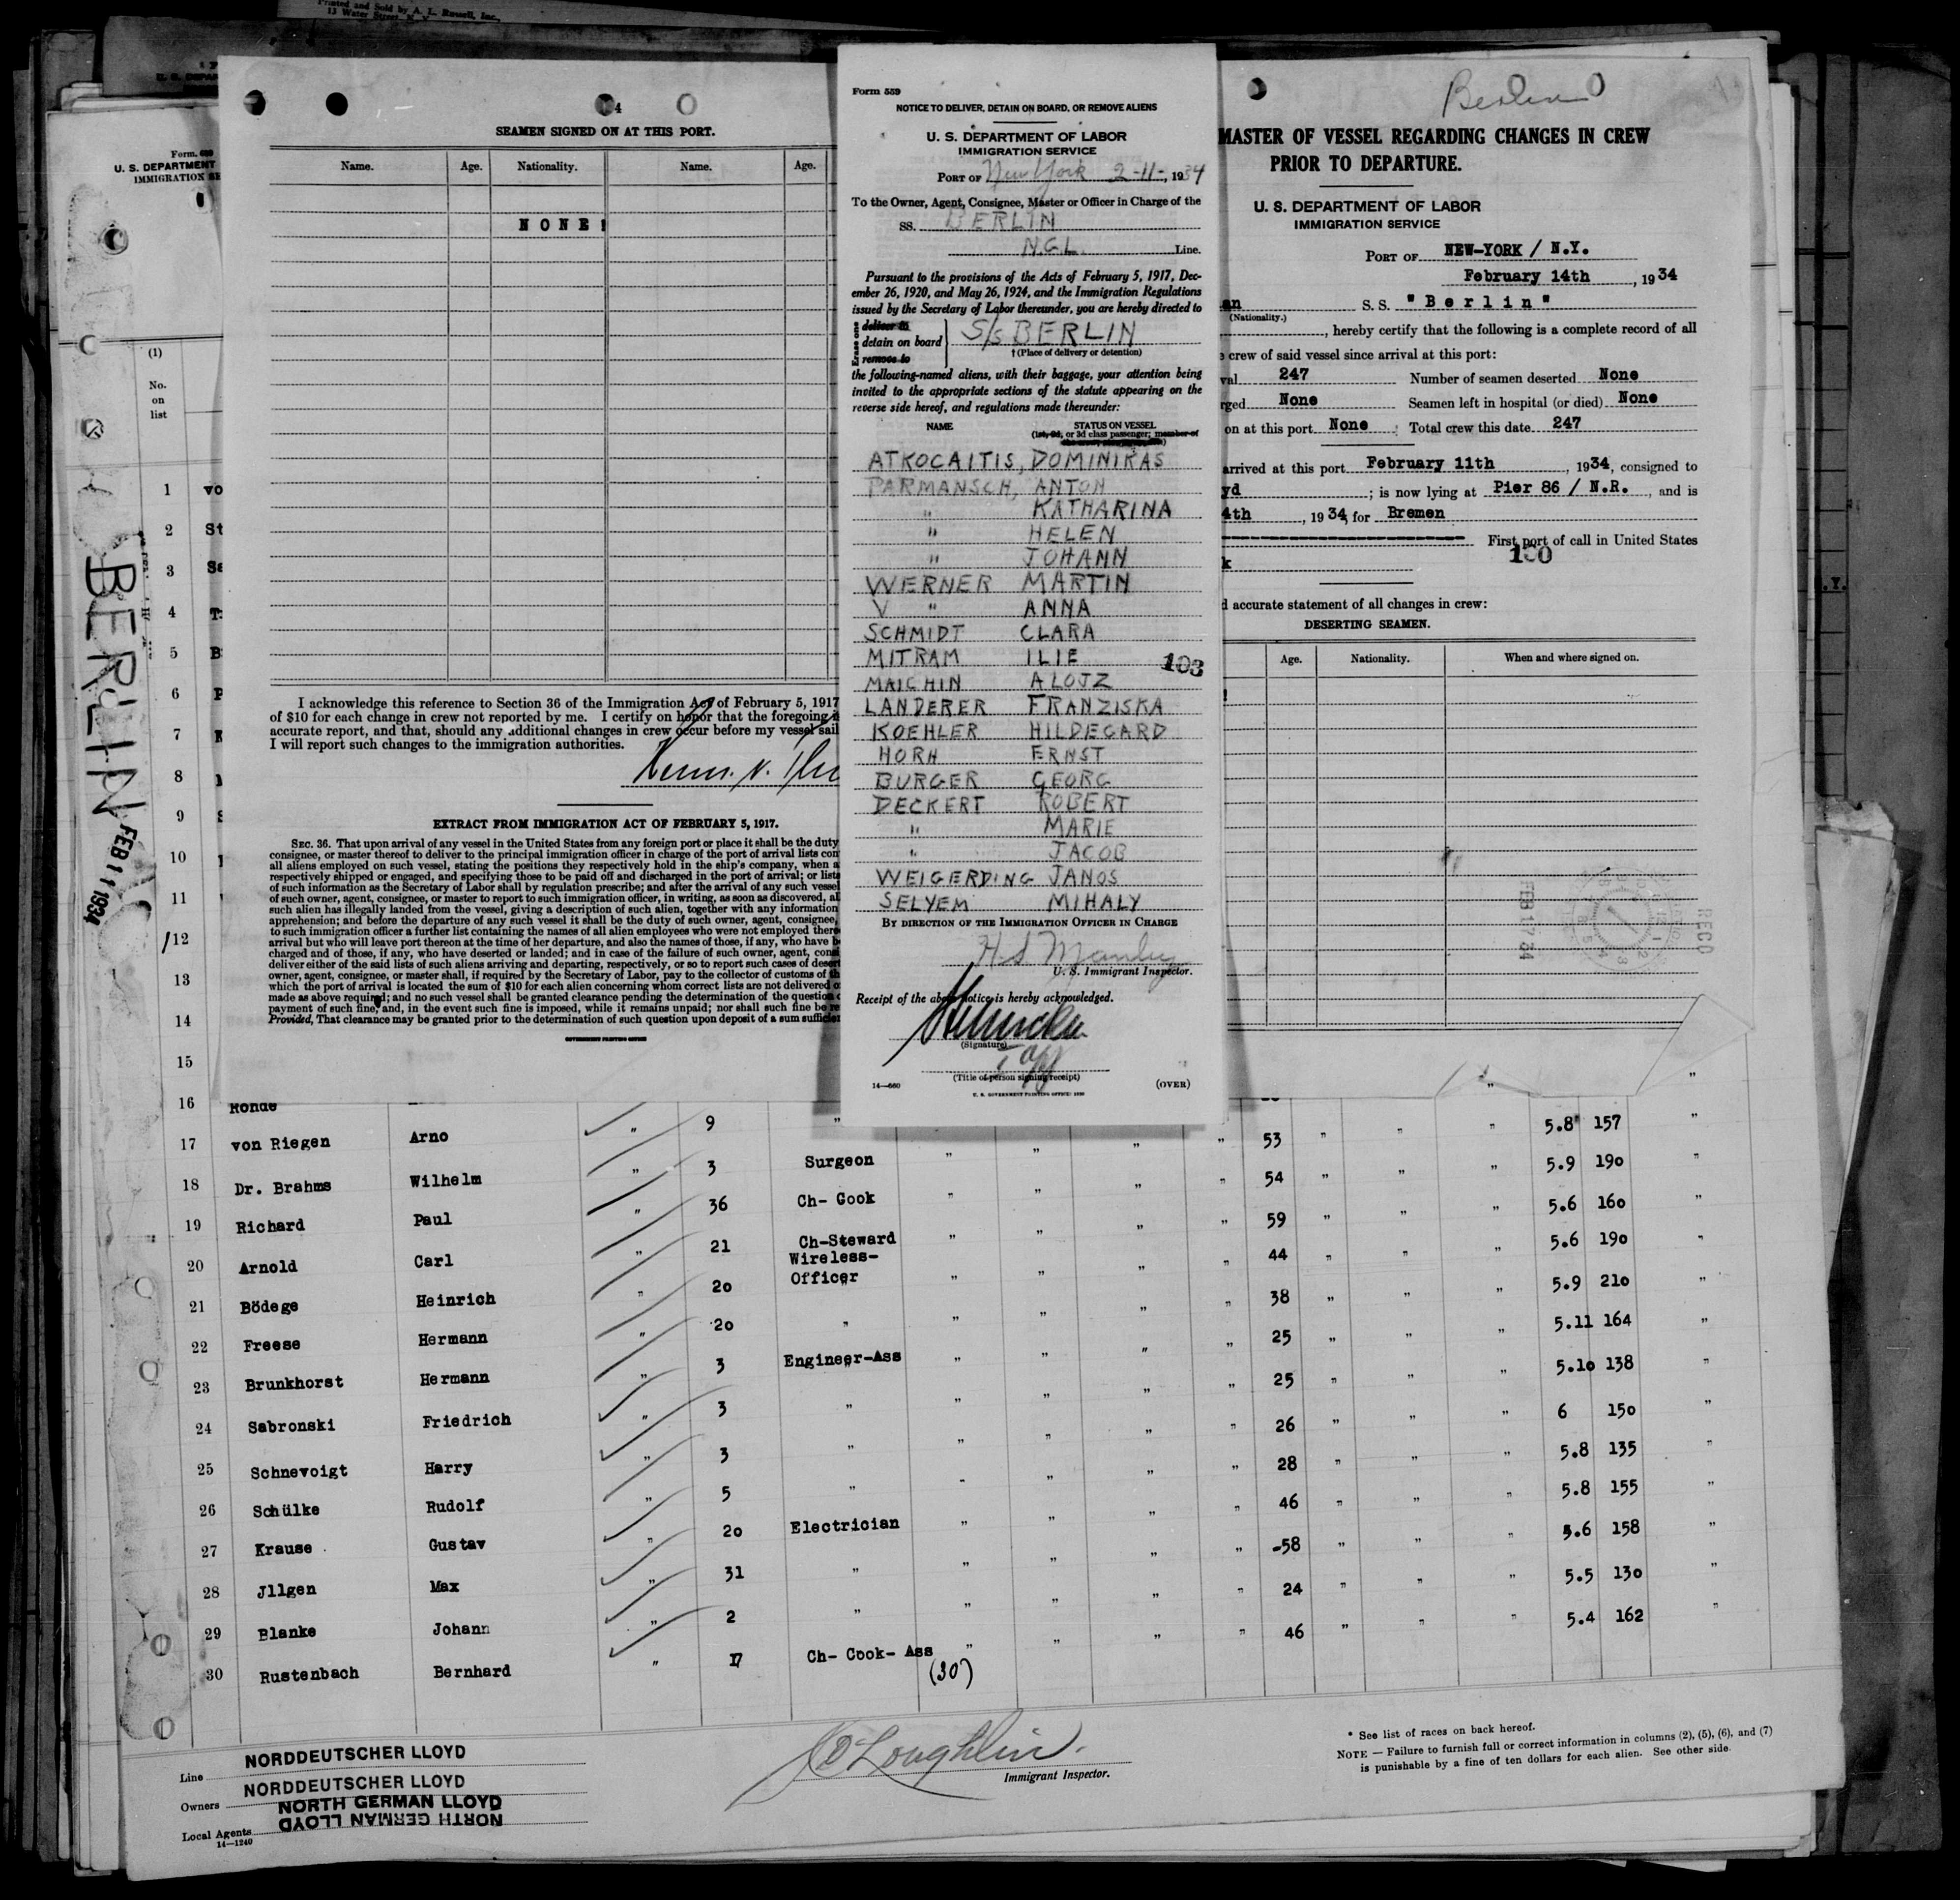 Printed and Sold by A. L. Russell, Inc.,
13 Water Street, N. Y.
Form. 689
U. S. DEPARTMENT
IMMIGRATION SE
(1)
No.
on
list
BERLIN
FEB 11 1934
1 vo
2 St
3 Se
4 T
5 B
6 P
7
8
9
10
11
12
13
14
15
4
SEAMEN SIGNED ON AT THIS PORT.
Name. Age. Nationality. Name. Age.
NONE!
I acknowledge this reference to Section 36 of the Immigration Act of February 5, 1917
of $10 for each change in crew not reported by me. I certify on honor that the foregoing i
accurate report, and that, should any additional changes in crew occur before my vessel sail
I will report such changes to the immigration authorities.
EXTRACT FROM IMMIGRATION ACT OF FEBRUARY 5, 1917.
SEC. 36. That upon arrival of any vessel in the United States from any foreign port or place it shall be the duty
consignee, or master thereof to deliver to the principal immigration officer in charge of the port of arrival lists con
all aliens employed on such vessel, stating the positions they respectively hold in the ship's company, when a
respectively shipped or engaged, and specifying those to be paid off and discharged in the port of arrival; or lists
of such information as the Secretary of Labor shall by regulation prescribe; and after the arrival of any such vessel
of such owner, agent, consignee, or master to report to such immigration officer, in writing, as soon as discovered, al
such alien has illegally landed from the vessel, giving a description of such alien, together with any information
apprehension; and before the departure of any such vessel it shall be the duty of such owner, agent, consignee,
to such immigration officer a further list containing the names of all alien employees who were not employed there
arrival but who will leave port thereon at the time of her departure, and also the names of those, if any, who have b
charged and of those, if any, who have deserted or landed; and in case of the failure of such owner, agent, cons
deliver either of the said lists of such aliens arriving and departing, respectively, or so to report such cases of desert
owner, agent, consignee, or master shall, if required by the Secretary of Labor, pay to the collector of customs of th
which the port of arrival is located the sum of $10 for each alien concerning whom correct lists are not delivered o
made as above required; and no such vessel shall be granted clearance pending the determination of the question o
payment of such fine, and, in the event such fine is imposed, while it remains unpaid; nor shall such fine be re
Provided, That clearance may be granted prior to the determination of such question upon deposit of a sum sufficien
GOVERNMENT PRINTING OFFICE
Form 559
NOTICE TO DELIVER, DETAIN ON BOARD, OR REMOVE ALIENS
U. S. DEPARTMENT OF LABOR
IMMIGRATION SERVICE
PORT OF New York 2-11-, 1934
To the Owner, Agent, Consignee, Master or Officer in Charge of the
SS. BERLIN
N.G.L. Line.
Pursuant to the provisions of the Acts of February 5, 1917, Dec-
ember 26, 1920, and May 26, 1924, and the Immigration Regulations
issued by the Secretary of Labor thereunder, you are hereby directed to
Erase one
deliver to
detain on board
remove to
S/s BERLIN
† (Place of delivery or detention)
the following-named aliens, with their baggage, your attention being
invited to the appropriate sections of the statute appearing on the
reverse side hereof, and regulations made thereunder:
NAME STATUS ON VESSEL
(1st, 2d, or 3d class passenger; member of
ATKOCAITIS, DOMINIKAS
PARMANSCH, ANTON
" KATHARINA
" HELEN
" JOHANN
WERNER MARTIN
V " ANNA
SCHMIDT CLARA
MITRAM ILIE 103
MAICHIN ALOJZ
LANDERER FRANZISKA
KOEHLER HILDEGARD
HORN ERNST
BURGER GEORG
DECKERT ROBERT
" MARIE
" JACOB
WEIGERDING JANOS
SELYEM MIHALY
BY DIRECTION OF THE IMMIGRATION OFFICER IN CHARGE
H S Manley
U. S. Immigrant Inspector.
Receipt of the above notice is hereby acknowledged.
(Signature)
(Title of person signing receipt)
14—660 (OVER)
U. S. GOVERNMENT PRINTING OFFICE:
Berlin
MASTER OF VESSEL REGARDING CHANGES IN CREW
PRIOR TO DEPARTURE.
U. S. DEPARTMENT OF LABOR
IMMIGRATION SERVICE
PORT OF NEW-YORK / N.Y.
February 14th, 1934
an S. S. "Berlin"
(Nationality.)
, hereby certify that the following is a complete record of all
e crew of said vessel since arrival at this port:
val 247 Number of seamen deserted None
rged None Seamen left in hospital (or died) None
on at this port None ; Total crew this date 247
arrived at this port February 11th, 1934, consigned to
yd ; is now lying at Pier 86 / N.R., and is
4th, 1934, for Bremen
First port of call in United States
k
100
d accurate statement of all changes in crew:
DESERTING SEAMEN.
Age. Nationality. When and where signed on.
!
FEB 17 34
RECD
16 Rohde
17 von Riegen Arno " 9 " 53 " " " 5.8 157 "
18 Dr. Brahms Wilhelm " 3 Surgeon " " " " 54 " " " 5.9 190 "
19 Richard Paul " 36 Ch- Cook " " " " 59 " " " 5.6 160 "
20 Arnold Carl " 21 Ch-Steward " " " " 44 " " " 5.6 190 "
21 Bödege Heinrich " 20 Wireless-Officer " " " " 38 " " " 5.9 210 "
22 Freese Hermann " 20 " " " " " 25 " " " 5.11 164 "
23 Brunkhorst Hermann " 3 Engineer-Ass " " " " 25 " " " 5.10 138 "
24 Sabronski Friedrich " 3 " " " " " 26 " " " 6 150 "
25 Schnevoigt Harry " 3 " " " " " 28 " " " 5.8 135 "
26 Schülke Rudolf " 5 " " " " " 46 " " " 5.8 155 "
27 Krause Gustav " 20 Electrician " " " " 58 " " " 5.6 158 "
28 Jllgen Max " 31 " " " " " 24 " " " 5.5 130 "
29 Blanke Johann " 2 " " " " " 46 " " " 5.4 162 "
30 Rustenbach Bernhard " 17 Ch- Cook- Ass "
(30)
Line NORDDEUTSCHER LLOYD
Owners NORDDEUTSCHER LLOYD
NORTH GERMAN LLOYD
Local Agents NORTH GERMAN LLOYD
14—1240
Immigrant Inspector.
* See list of races on back hereof.
NOTE — Failure to furnish full or correct information in columns (2), (5), (6), and (7)
is punishable by a fine of ten dollars for each alien. See other side.